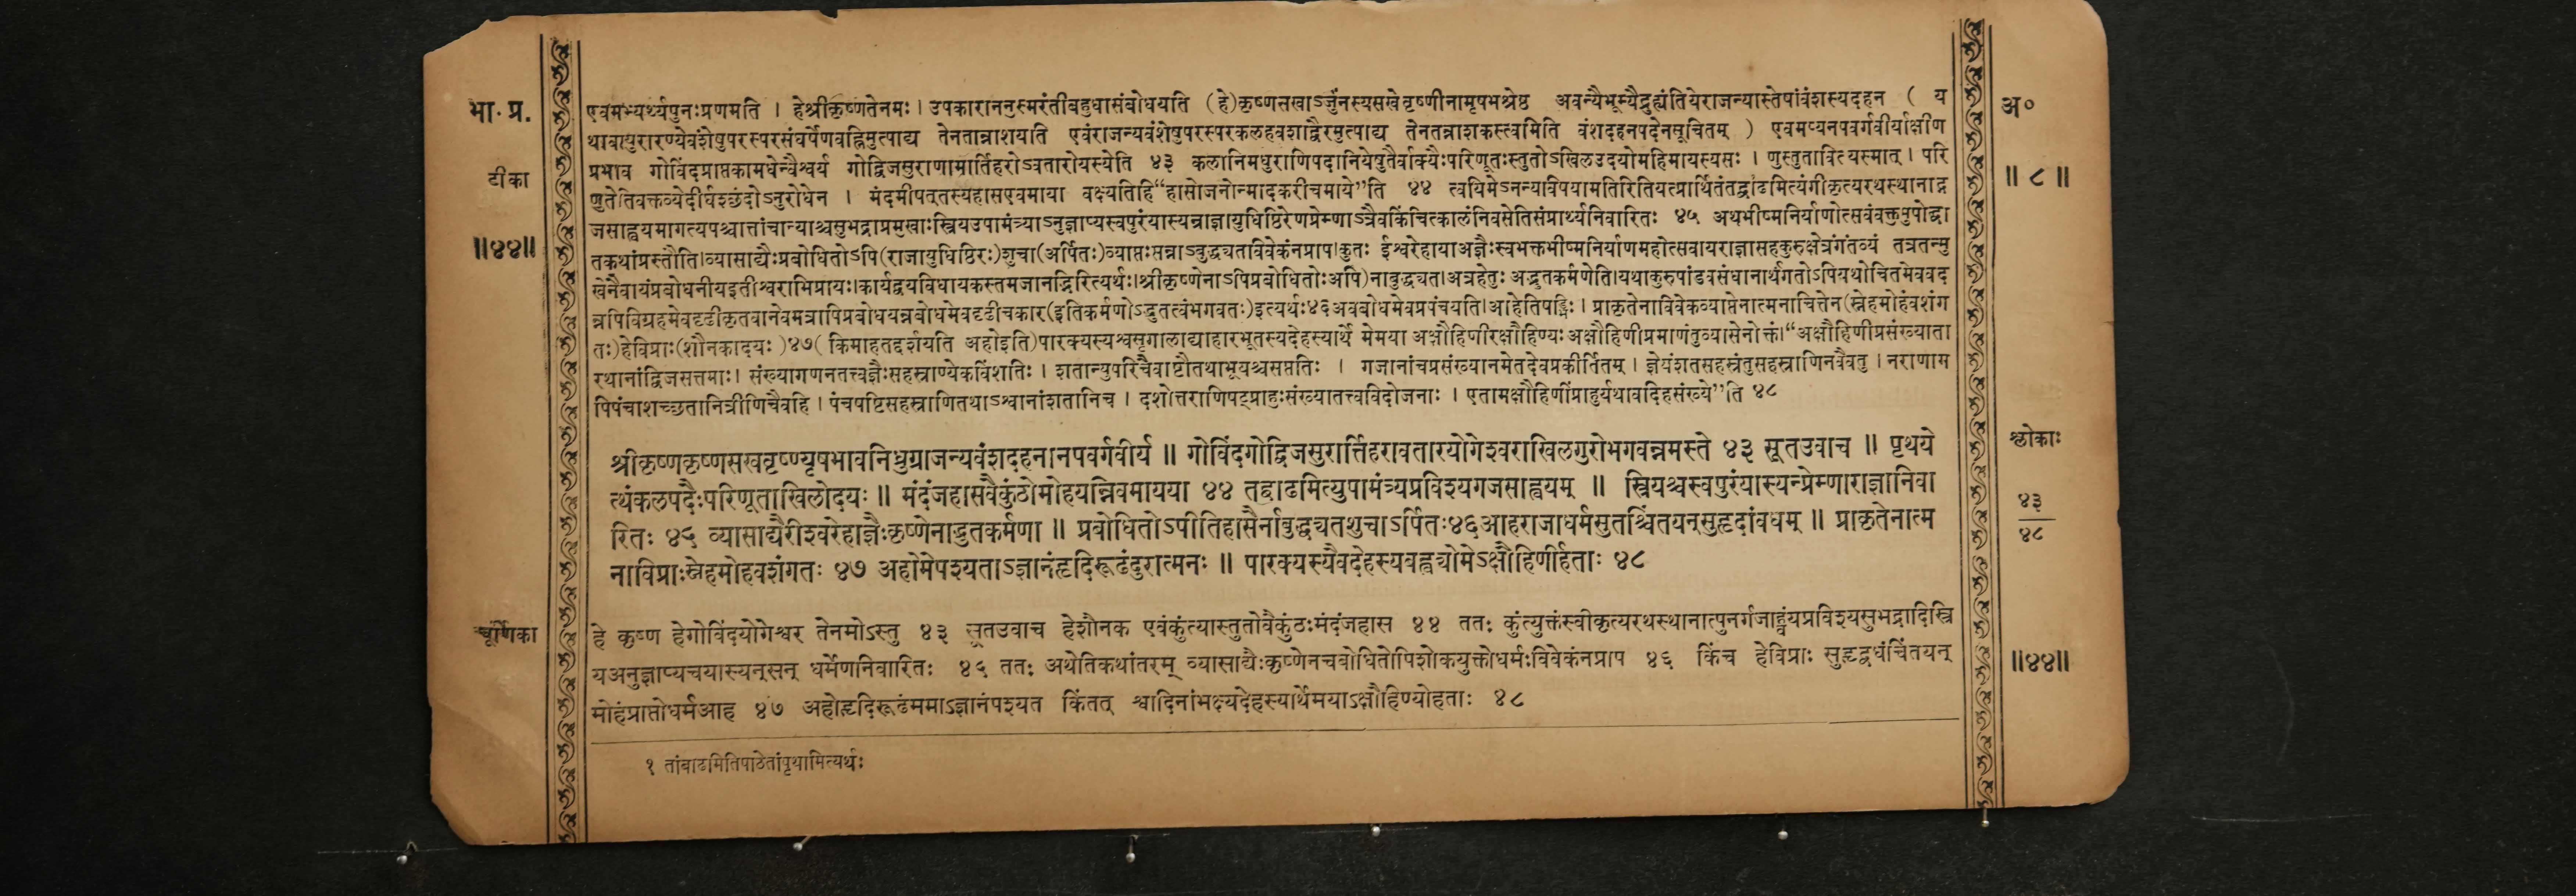 भा. प्र.
टीका
॥४४॥
एवमभ्यर्थ्यपुनःप्रणमति । हेश्रीकृष्णतेनमः । उपकाराननुस्मरंतीबहुधासंबोधयति (हे)कृष्णसखाऽर्जुनस्यसखेवृष्णीनामृषभश्रेष्ठ अवन्यैभूम्यैद्रुह्यंतियेराजन्यास्तेषांवंशस्यदहन ( य
थावायुरारण्येवंशेषुपरस्परसंघर्षेणवह्निमुत्पाद्य तेनतान्नाशयति एवंराजन्यवंशेषुपरस्परकलहवशाद्वैरमुत्पाद्य तेनतन्नाशकस्त्वमिति वंशदहनपदेनसूचितम् ) एवमप्यनपवर्गवीर्याक्षीण
प्रभाव गोविंदप्राप्तकामधेन्वैश्वर्य गोद्विजसुराणामार्तिहरोऽवतारोयस्येति ४३ कलानिमधुराणिपदानियेषुतैर्वाक्यैःपरिणूतःस्तुतोऽखिलउदयोमहिमायस्यसः । णुस्तुतावित्यस्मात् । परि
णुतेतिवक्तव्येदीर्घश्छंदोऽनुरोधेन । मंदमीषत्तस्यहासएवमाया वक्ष्यतिहि“हासोजनोन्मादकरीचमाये”ति ४४ त्वयिमेऽनन्यविषयामतिरितियत्प्रार्थितंतद्बाढमित्यंगीकृत्यरथस्थानाद्ग
जसाह्वयमागत्यपश्चात्तांचान्याश्चसुभद्राप्रमुखाःस्त्रियउपामंत्र्याऽनुज्ञाप्यस्वपुरंयास्यन्राज्ञायुधिष्ठिरेणप्रेम्णाऽत्रैवकिंचित्कालंनिवसेतिसंप्रार्थ्यनिवारितः ४५ अथभीष्मनिर्याणोत्सवंवक्तुमुपोद्घा
तकथांप्रस्तौति।व्यासाद्यैःप्रबोधितोऽपि(राजायुधिष्ठिरः)शुचा(अर्पितः)व्याप्तःसन्नाऽबुद्ध्यतविवेकंनप्राप।कुतः ईश्वरेहायाअज्ञैःस्वभक्तभीष्मनिर्याणमहोत्सवायराज्ञासहकुरुक्षेत्रंगंतव्यं तत्रतन्मु
खेनैवायंप्रबोधनीयइतीश्वराभिप्रायः।कार्यद्वयविधायकस्तमजानद्भिरित्यर्थः।श्रीकृष्णेनाऽपिप्रबोधितोःअपि)नाबुद्ध्यत।अत्रहेतुः अद्भुतकर्मणेति।यथाकुरुपांडवसंधानार्थंगतोऽपियथोचितमेववद
न्नपिविग्रहमेवदृढीकृतवानेवमत्रापिप्रबोधयन्नबोधमेवदृढीचकार(इतिकर्मणोऽद्भुतत्वंभगवतः)इत्यर्थः४६अवबोधमेवप्रपंचयति।आहेतिषड्भिः । प्राकृतेनाविवेकव्याप्तेनात्मनाचित्तेन(स्नेहमोहंवशंग
तः)हेविप्राः(शौनकादयः )४७( किमाहतद्दर्शयति अहोइति)पारक्यस्यश्वसृगालाद्याहारभूतस्यदेहस्यार्थे मेमया अक्षौहिणीरक्षौहिण्यः अक्षौहिणीप्रमाणंतुव्यासेनोक्तं।“अक्षौहिणीप्रसंख्याता
रथानांद्विजसत्तमाः। संख्यागणनतत्त्वज्ञैःसहस्राण्येकविंशतिः । शतान्युपरिचैवाष्टौतथाभूयश्चसप्ततिः । गजानांचप्रसंख्यानमेतदेवप्रकीर्तितम् । ज्ञेयंशतसहस्रंतुसहस्राणिनवैवतु । नराणाम
पिपंचाशच्छतानित्रीणिचैवहि । पंचषष्टिसहस्राणितथाऽश्वानांशतानिच । दशोत्तराणिषट्प्राहुःसंख्यातत्त्वविदोजनाः । एतामक्षौहिणींप्राहुर्यथावदिहसंख्ये”ति ४८
श्रीकृष्णकृष्णसखवृष्ण्यृषभावनिध्रुग्राजन्यवंशदहनानपवर्गवीर्य ॥ गोविंदगोद्विजसुरार्त्तिहरावतारयोगेश्वराखिलगुरोभगवन्नमस्ते ४३ सूतउवाच ॥ पृथये
त्थंकलपदैःपरिणूताखिलोदयः ॥ मंदंजहासवैकुंठोमोहयन्निवमायया ४४ तद्बाढमित्युपामंत्र्यप्रविश्यगजसाह्वयम् ॥ स्त्रियश्चस्वपुरंयास्यन्प्रेम्णाराज्ञानिवा
रितः ४५ व्यासाद्यैरीश्वरेहाज्ञैःकृष्णेनाद्भुतकर्मणा ॥ प्रबोधितोऽपीतिहासैर्नाबुद्ध्यतशुचाऽर्पितः४६आहराजाधर्मसुतश्चिंतयन्सुहृदांवधम् ॥ प्राकृतेनात्म
नाविप्राःस्नेहमोहवशंगतः ४७ अहोमेपश्यताऽज्ञानंहृदिरूढंदुरात्मनः ॥ पारक्यस्यैवदेहस्यबह्व्योमेऽक्षौहिणीर्हताः ४८
चूर्णिका
हे कृष्ण हेगोविंदयोगेश्वर तेनमोऽस्तु ४३ सूतउवाच हेशौनक एवंकुंत्यास्तुतोवैकुंठःमंदंजहास ४४ ततः कुंत्युक्तंस्वीकृत्यरथस्थानात्पुनर्गजाह्वयंप्रविश्यसुभद्रादिस्त्रि
यअनुज्ञाप्यचयास्यन्सन् धर्मेणनिवारितः ४५ ततः अथेतिकथांतरम् व्यासाद्यैःकृष्णेनचबोधितोपिशोकयुक्तोधर्मःविवेकंनप्राप ४६ किंच हेविप्राः सुहृद्वधंचिंतयन्
मोहंप्राप्तोधर्मआह ४७ अहोहृदिरूढंममाऽज्ञानंपश्यत किंतत् श्वादिनांभक्ष्यदेहस्यार्थेमयाऽक्षौहिण्योहताः ४८
१ तांबाढमितिपाठेतांपृथामित्यर्थः
अ०
॥ ८ ॥
श्लोकाः
४३
४८
॥४४॥